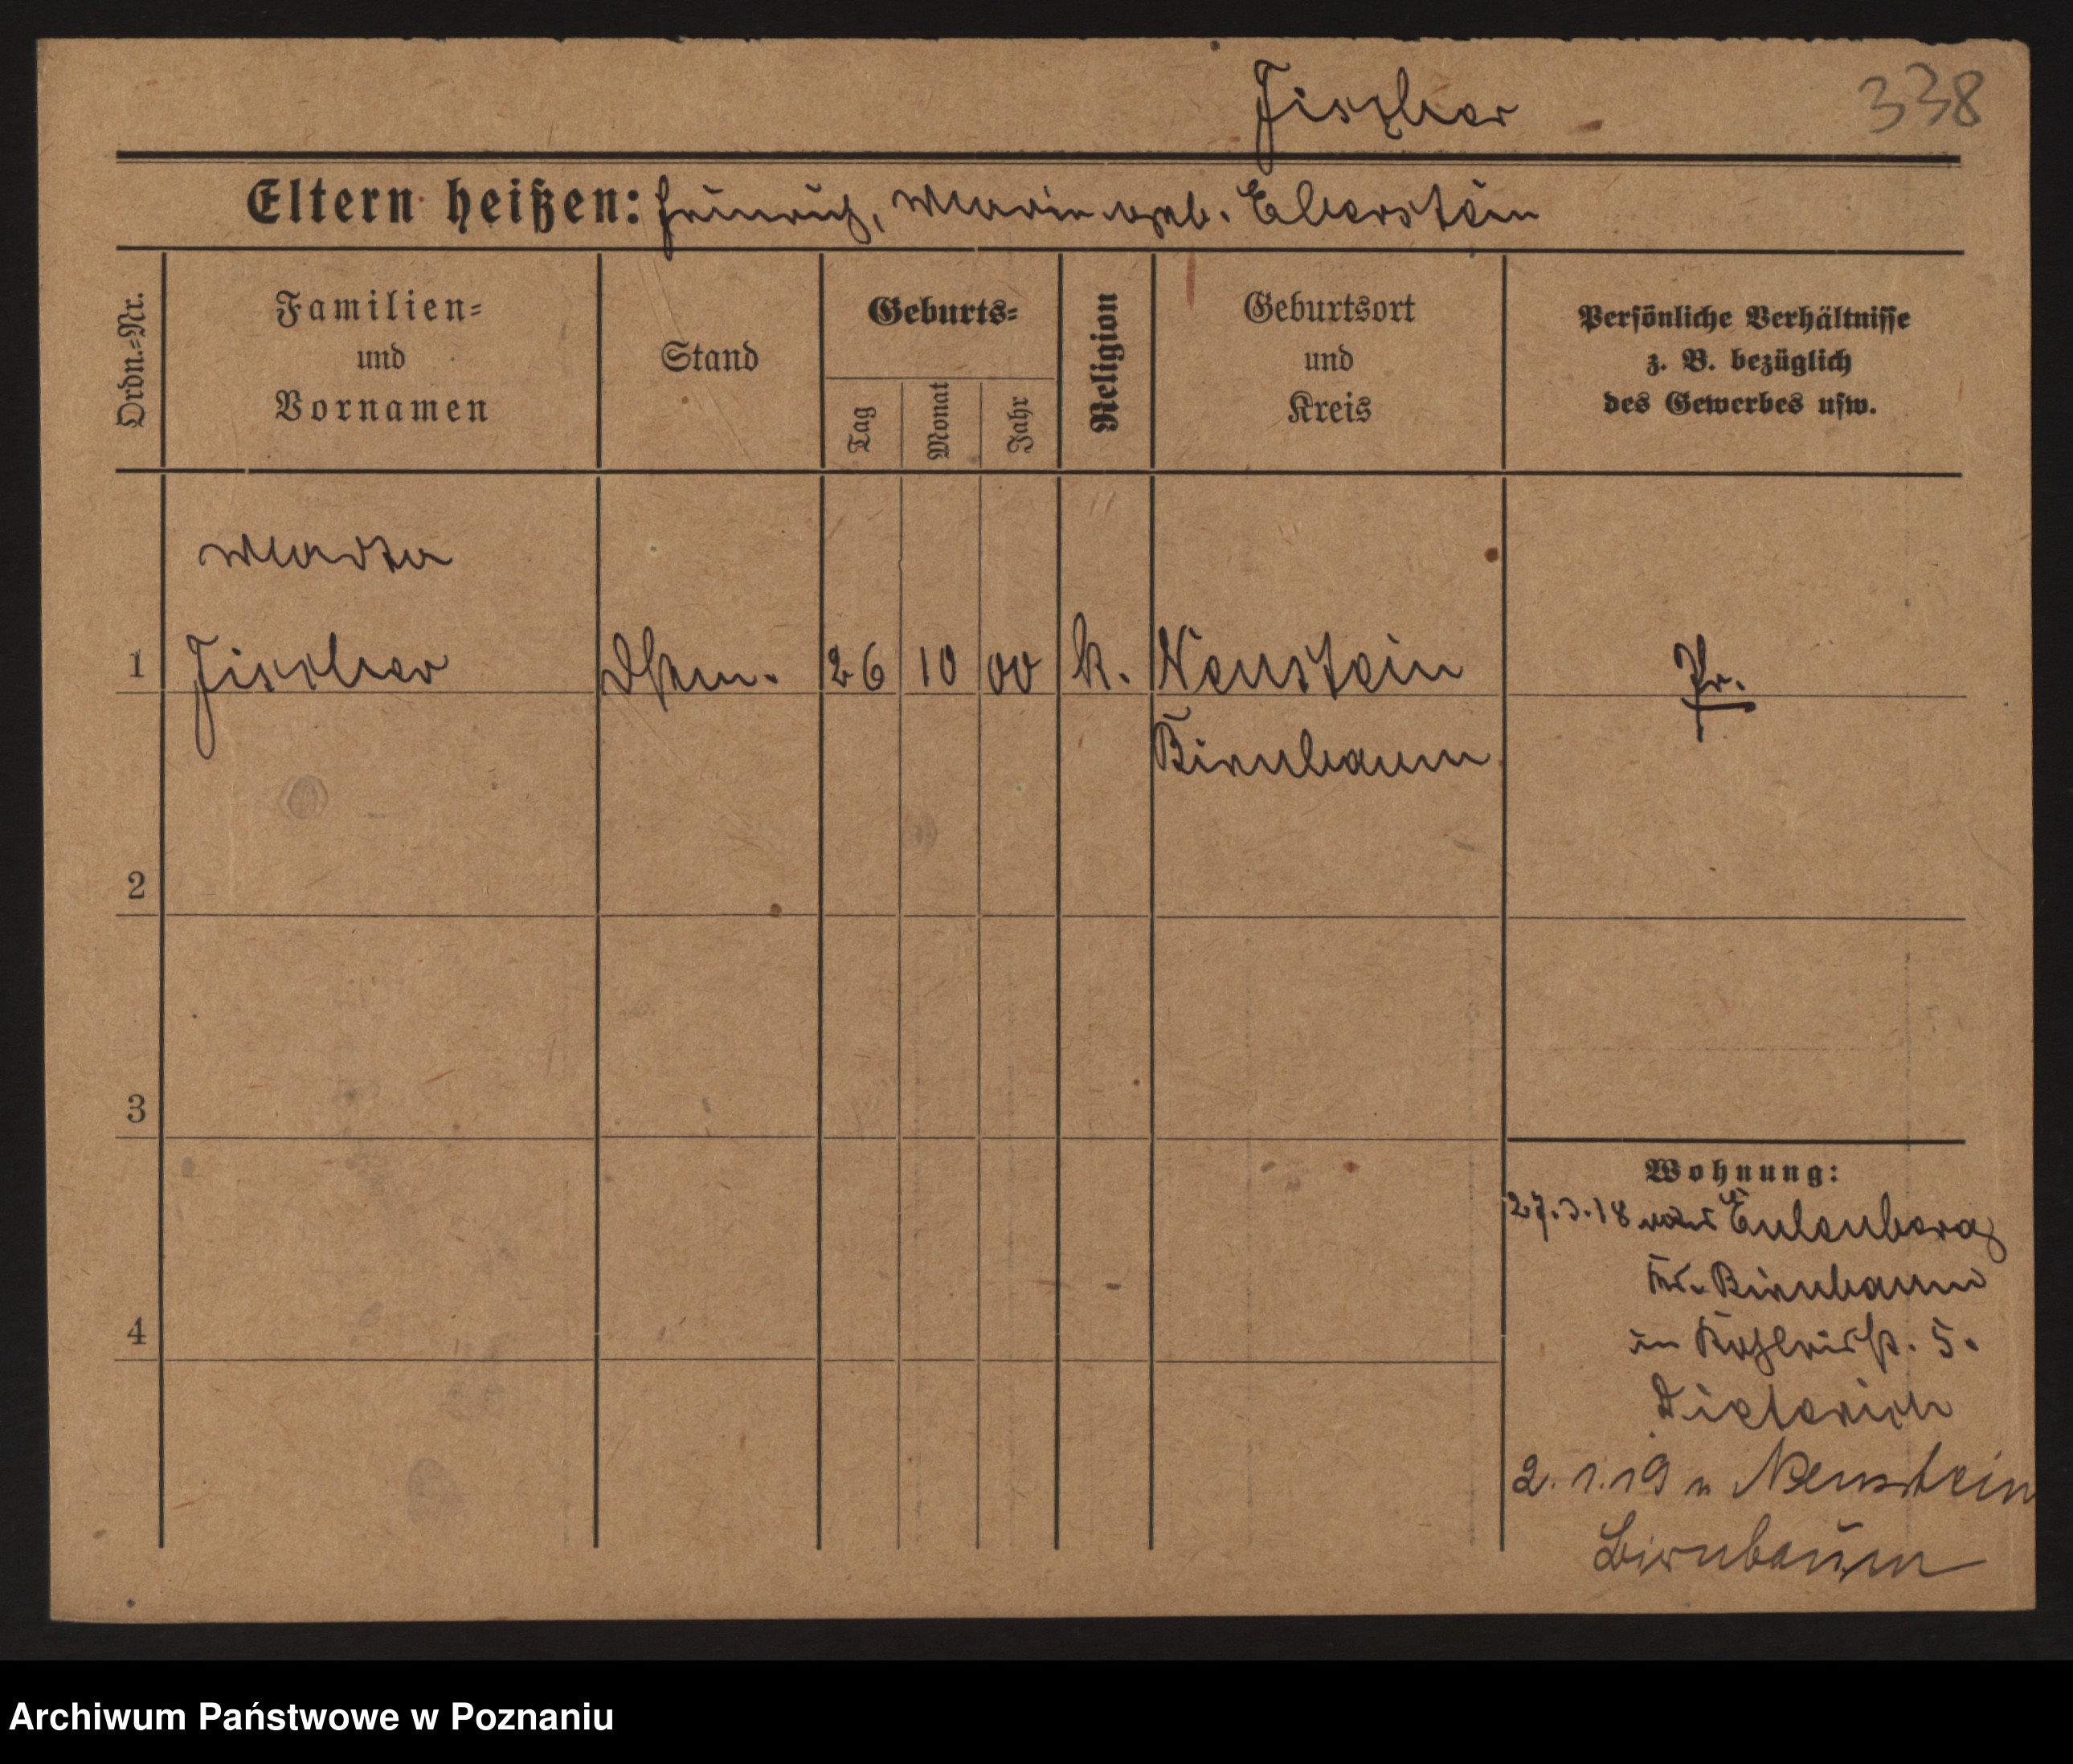 Fischer
338
Eltern heißen: Heinrich, Maria geb. Eberstein
Ordn.-Nr.
Familien-
und
Vornamen
Stand
Geburts-
Tag
Monat
Jahr
Religion
Geburtsort
und
Kreis
Persönliche Verhältnisse
z. B. bezüglich
des Gewerbes usw.
Marta
1 Fischer 26 10 00 k. Neustein Pr.
Birnbaum
2
3
4
Wohnung:
27.3.18 von Eulenberg
Kr. Birnbaum
in 5.
Dieterich
2.1.19 n Neustein
Birnbaum
Archiwum Państwowe w Poznaniu